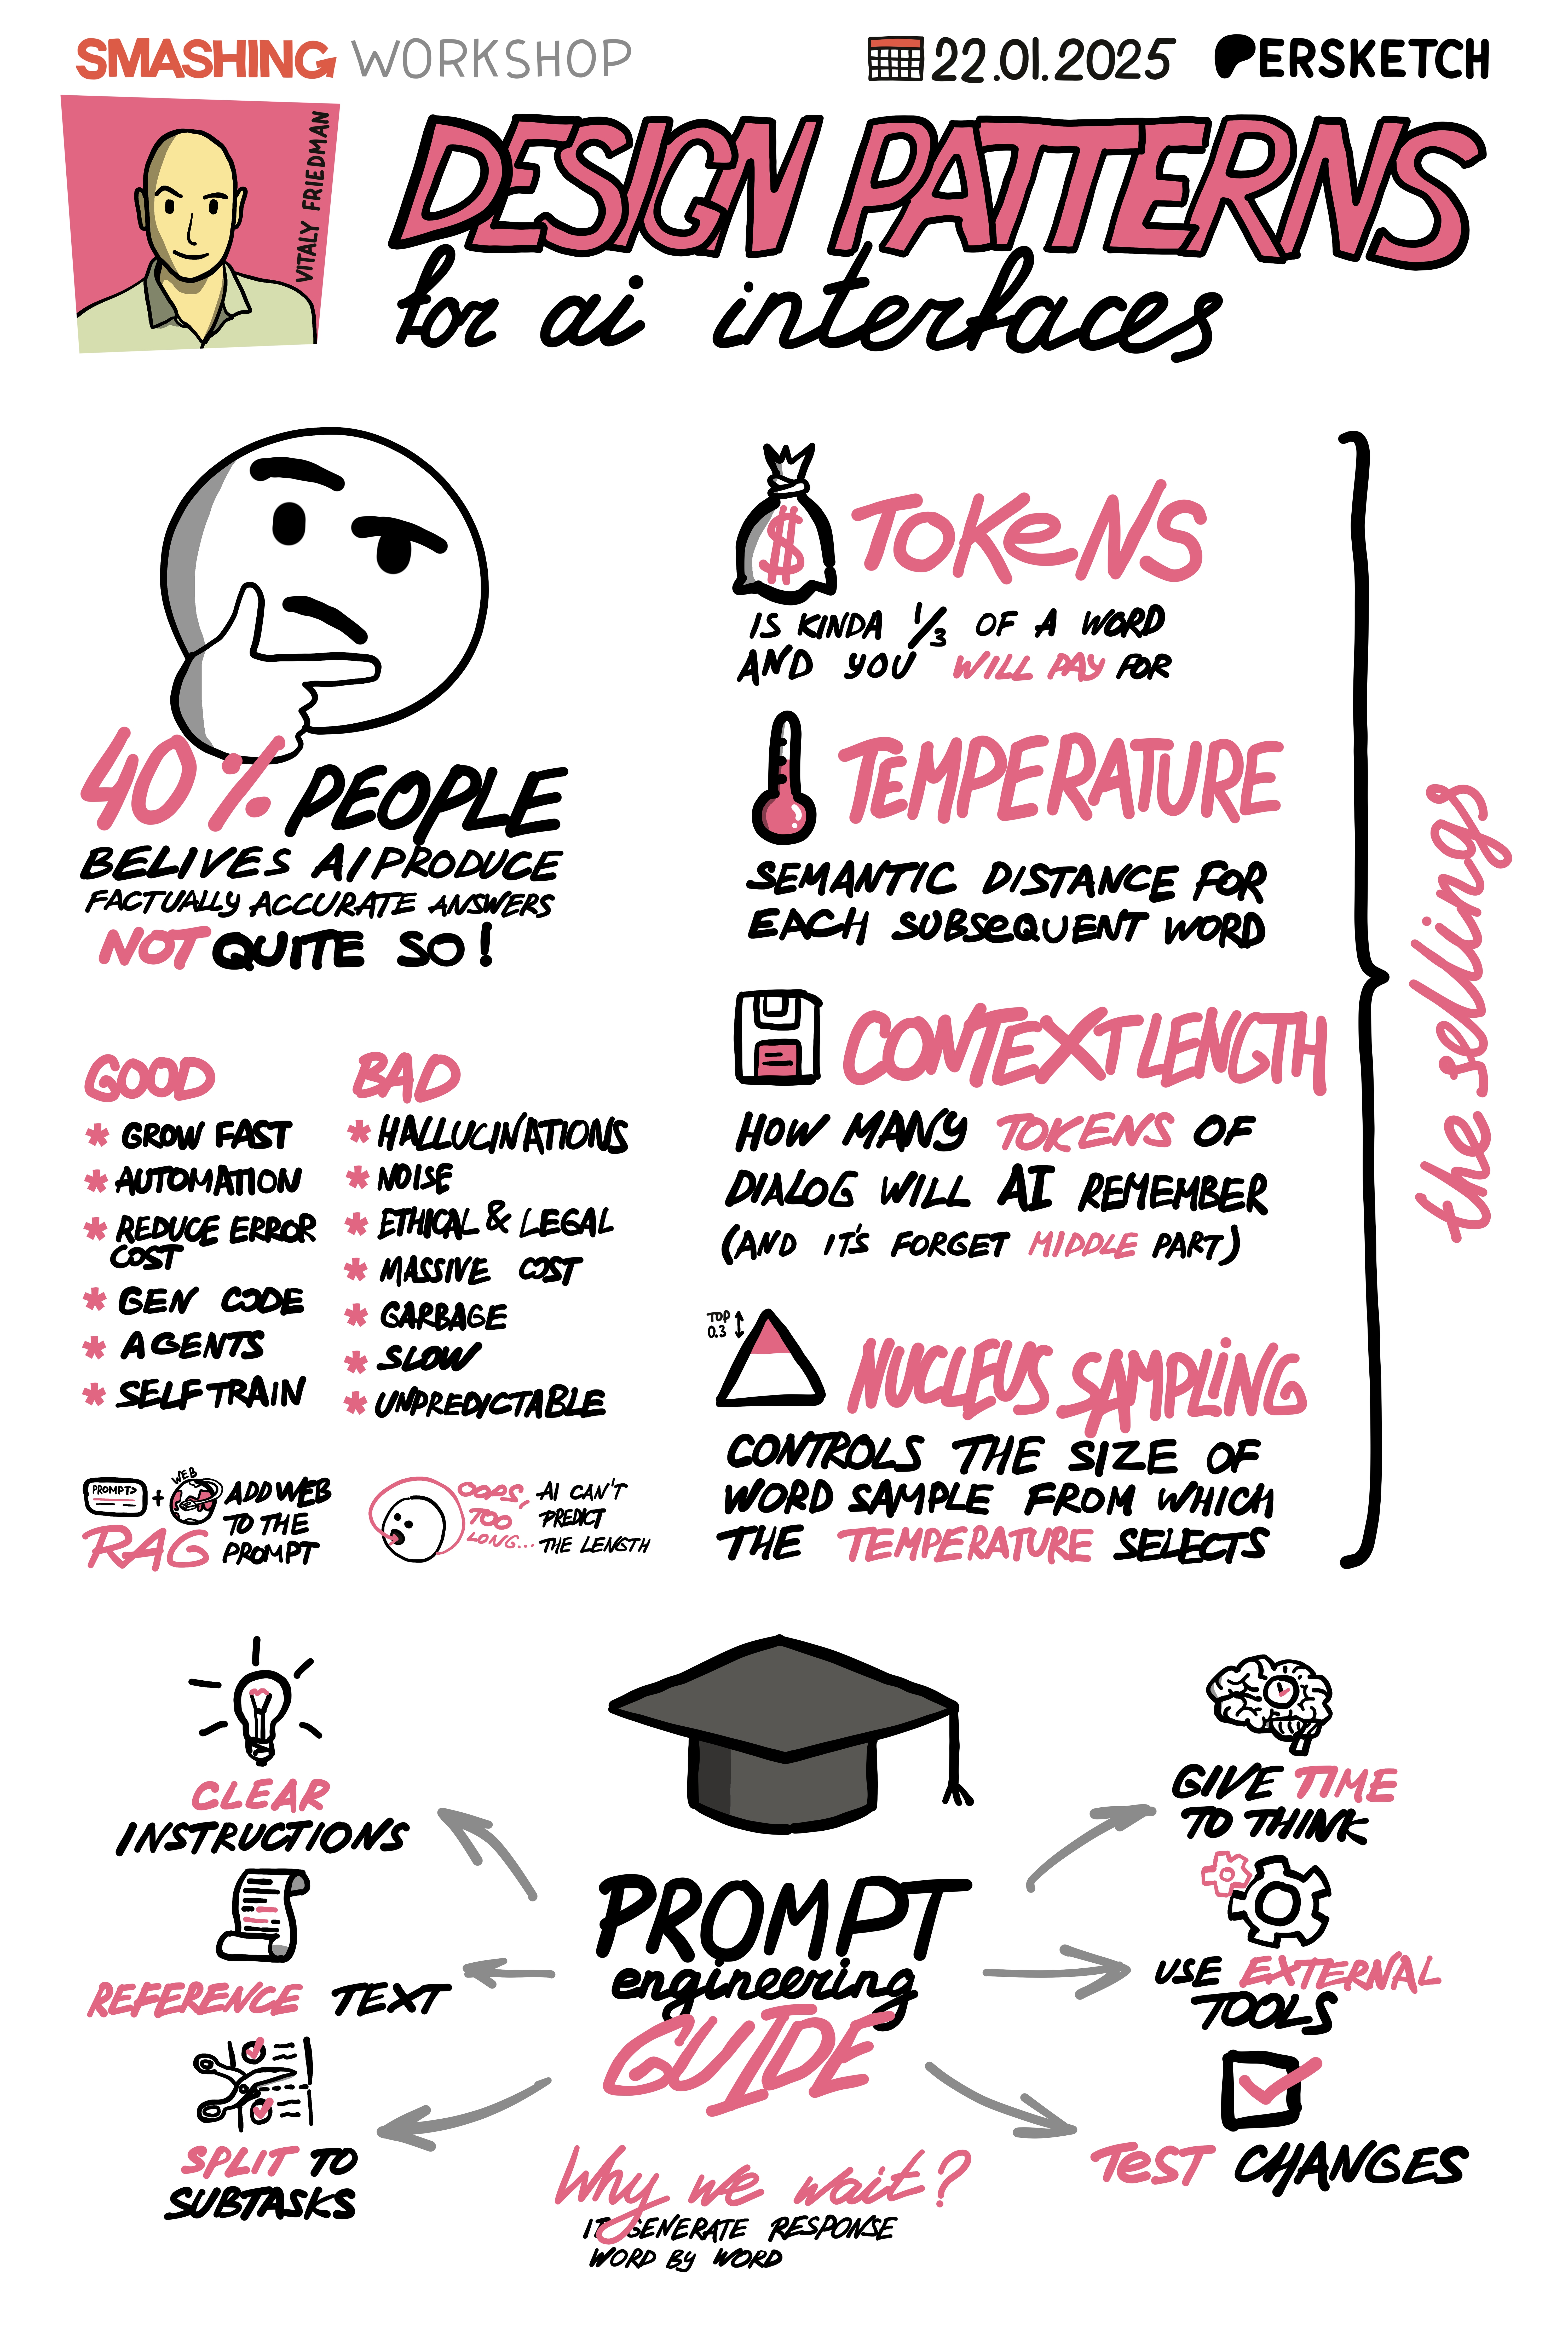 SMASHING WORKSHOP
22.01.2025
PERSKETCH
VITALY FRIEDMAN
DESIGN PATTERNS
for ai interfaces
40% PEOPLE
BELIVES AI PRODUCE
FACTUALLY ACCURATE ANSWERS
NOT QUITE SO!
GOOD
* GROW FAST
* AUTOMATION
* REDUCE ERROR
COST
* GEN CODE
* AGENTS
* SELF TRAIN
BAD
* HALLUCINATIONS
* NOISE
* ETHICAL & LEGAL
* MASSIVE COST
* GARBAGE
* SLOW
* UNPREDICTABLE
PROMPT> + WEB
RAG
ADD WEB
TO THE
PROMPT
OOPS,
TOO
LONG...
AI CAN'T
PREDICT
THE LENGTH
$
TOKENS
IS KINDA 1/3 OF A WORD
AND YOU WILL PAY FOR
TEMPERATURE
SEMANTIC DISTANCE FOR
EACH SUBSEQUENT WORD
CONTEXT LENGTH
HOW MANY TOKENS OF
DIALOG WILL AI REMEMBER
(AND IT'S FORGET MIDDLE PART)
TOP
0.3
NUCLEUS SAMPLING
CONTROLS THE SIZE OF
WORD SAMPLE FROM WHICH
THE TEMPERATURE SELECTS
the settings
PROMPT
engineering
GUIDE
CLEAR
INSTRUCTIONS
REFERENCE TEXT
SPLIT TO
SUBTASKS
GIVE TIME
TO THINK
USE EXTERNAL
TOOLS
TEST CHANGES
Why we wait?
IT GENERATE RESPONSE
WORD BY WORD